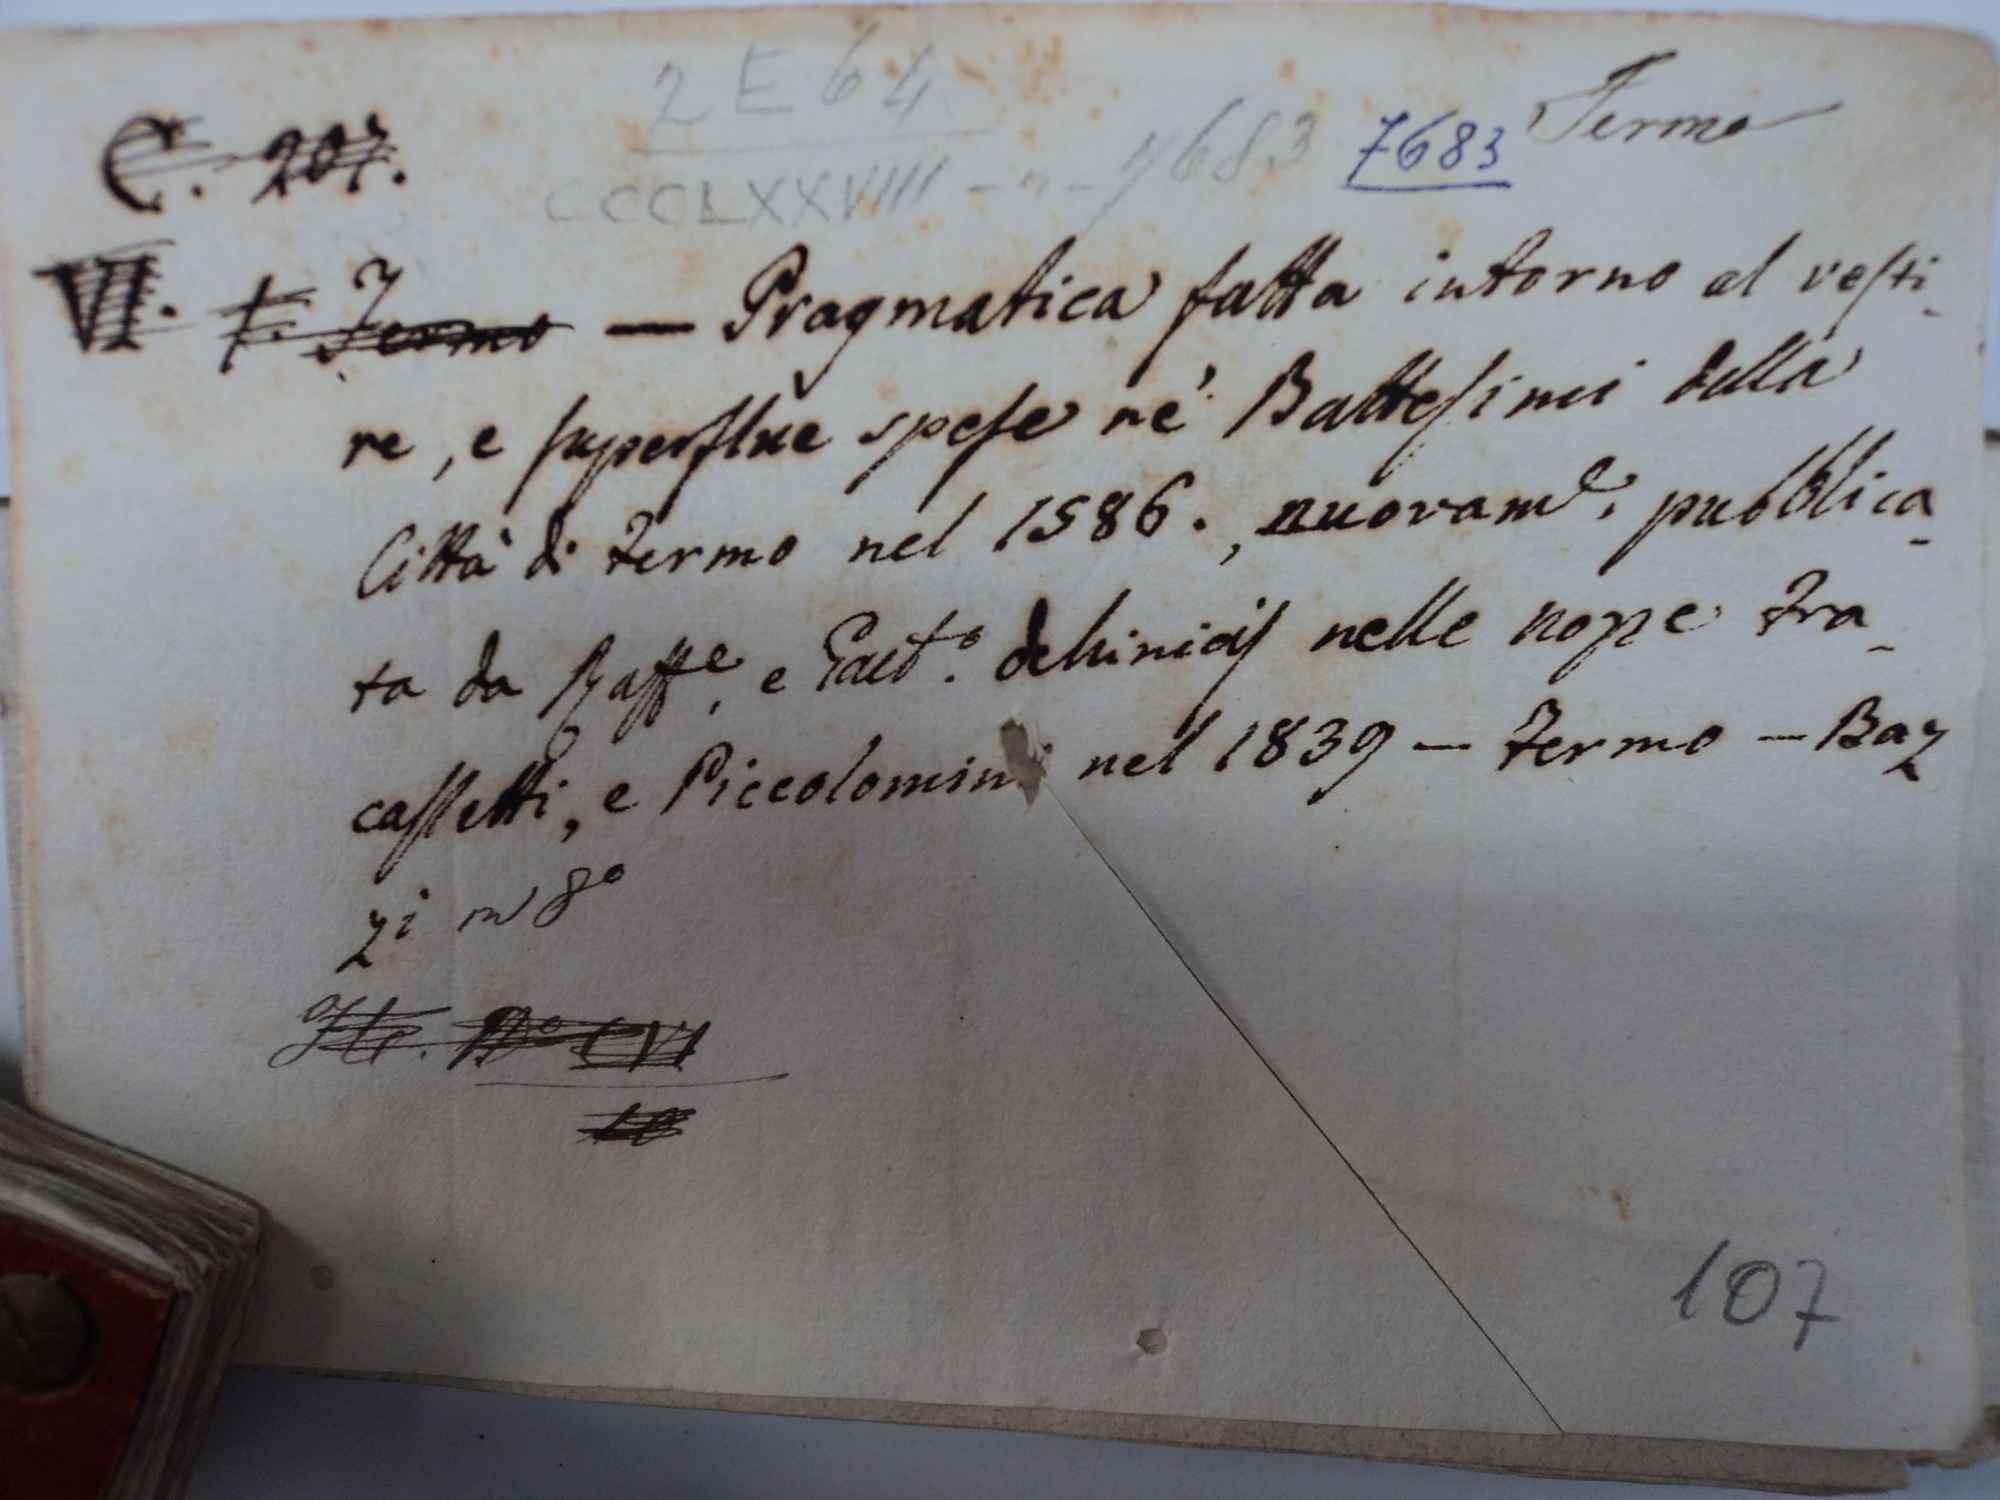 2 E 64
C. 207.
CCCLXXVIII - n - 7683
7683
Fermo
VI. F. Fermo — Pragmatica fatta intorno al vesti-
re, e superflue spese ne' Battesimi della
Città di Fermo nel 1586., nuovam.e pubblica-
ta da Raff.e, e Gaet.o deMinicis nelle nozze Fra-
cassetti, e Piccolomini nel 1839 — Fermo — Baz
zi in 8o
107